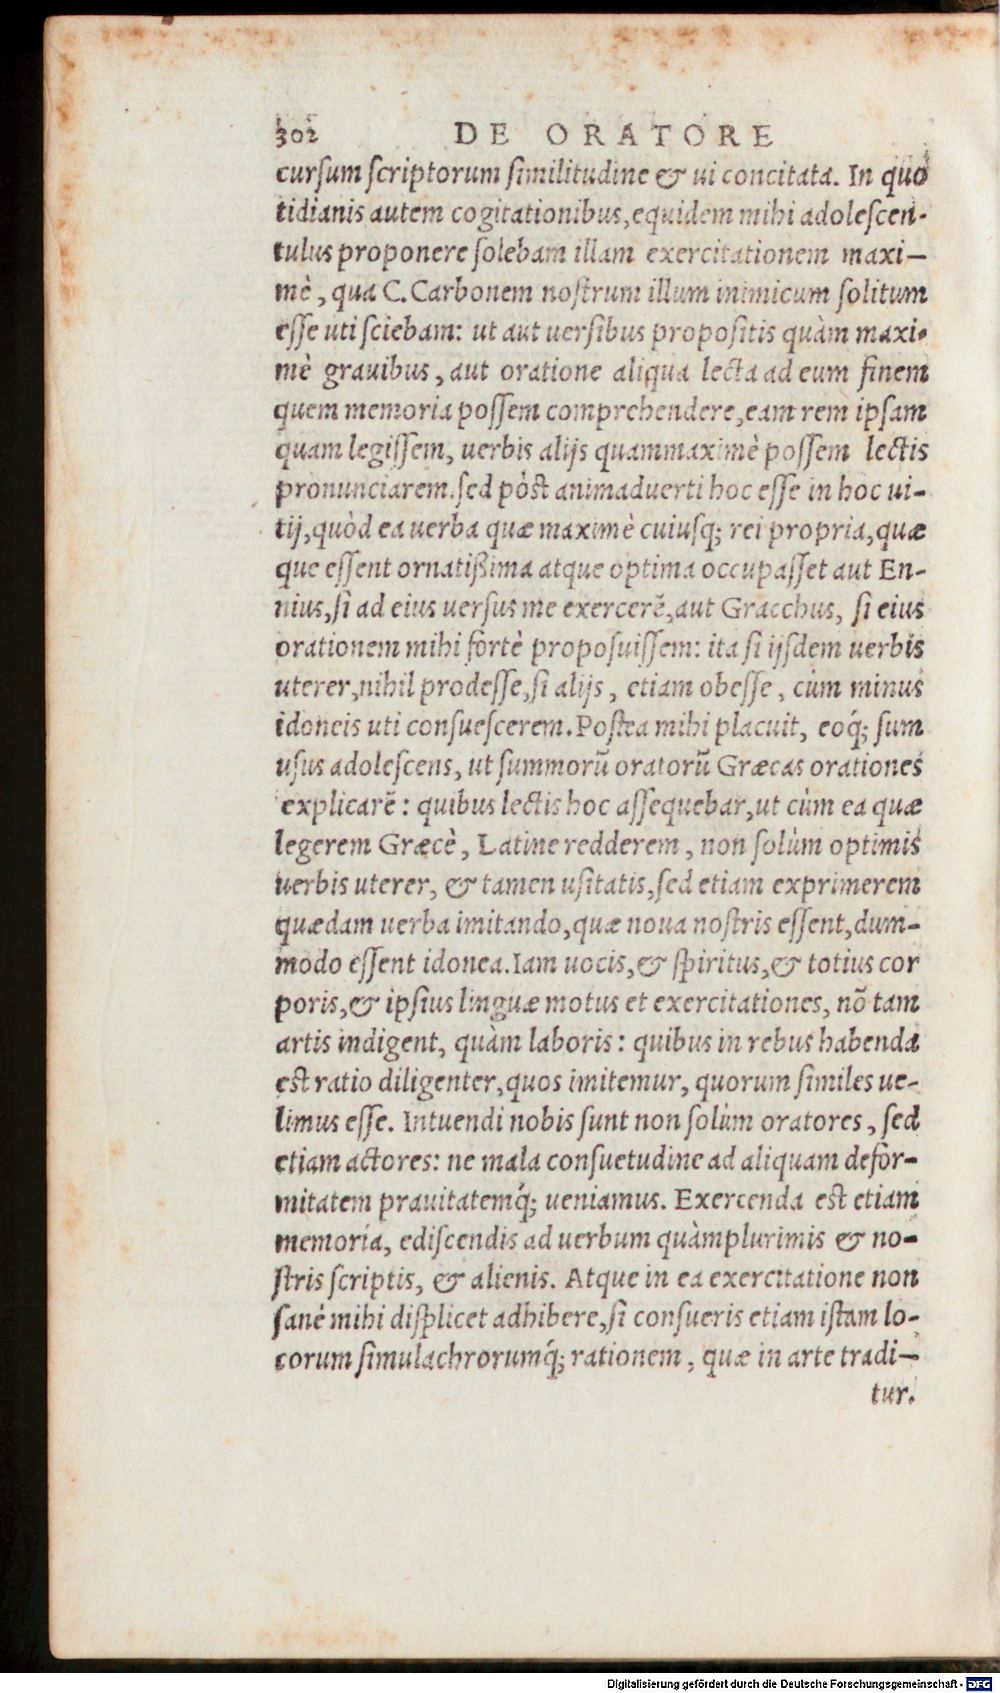 302 DE ORATORE
cursum scriptorum similitudine & ui concitata. In quo
tidianis autem cogitationibus, equidem mihi adolescen-
tulus proponere solebam illam exercitationem maxi-
mè, qua C. Carbonem nostrum illum inimicum solitum
esse uti sciebam: ut aut uersibus propositis quàm maxi-
mè grauibus, aut oratione aliqua lecta ad eum finem
quem memoria possem comprehendere, eam rem ipsam
quam legissem, uerbis alijs quammaximè possem lectis
pronunciarem. sed pòst animaduerti hoc esse in hoc ui-
tij, quòd ea uerba quæ maximè cuiusq; rei propria, quæ
que essent ornatißima atque optima occupasset aut En-
nius, si ad eius uersus me exercerē, aut Gracchus, si eius
orationem mihi fortè proposuissem: ita si ijsdem uerbis
uterer, nihil prodesse, si alijs, etiam obesse, cùm minus
idoneis uti consuescerem. Postea mihi placuit, eoq́; sum
usus adolescens, ut summorū oratorū Græcas orationes
explicarē: quibus lectis hoc assequebar, ut cùm ea quæ
legerem Græcè, Latine redderem, non solùm optimis
uerbis uterer, & tamen usitatis, sed etiam exprimerem
quædam uerba imitando, quæ noua nostris essent, dum-
modo essent idonea. Iam uocis, & spiritus, & totius cor
poris, & ipsius linguæ motus et exercitationes, nō tam
artis indigent, quàm laboris: quibus in rebus habenda
est ratio diligenter, quos imitemur, quorum similes ue-
limus esse. Intuendi nobis sunt non solùm oratores, sed
etiam actores: ne mala consuetudine ad aliquam defor-
mitatem prauitatemq́; ueniamus. Exercenda est etiam
memoria, ediscendis ad uerbum quàmplurimis & no-
stris scriptis, & alienis. Atque in ea exercitatione non
sanè mihi displicet adhibere, si consueris etiam istam lo-
corum simulachrorumq́; rationem, quæ in arte tradi-
tur.
Digitalisierung gefördert durch die Deutsche Forschungsgemeinschaft - DFG